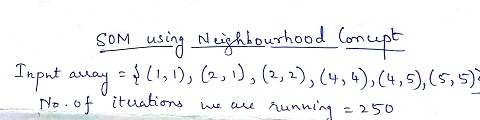 SOM using Neighbourhood Concept
Input array = { (1,1), (2,1), (2,2), (4,4), (4,5), (5,5)}
No. of iterations we are running = 250